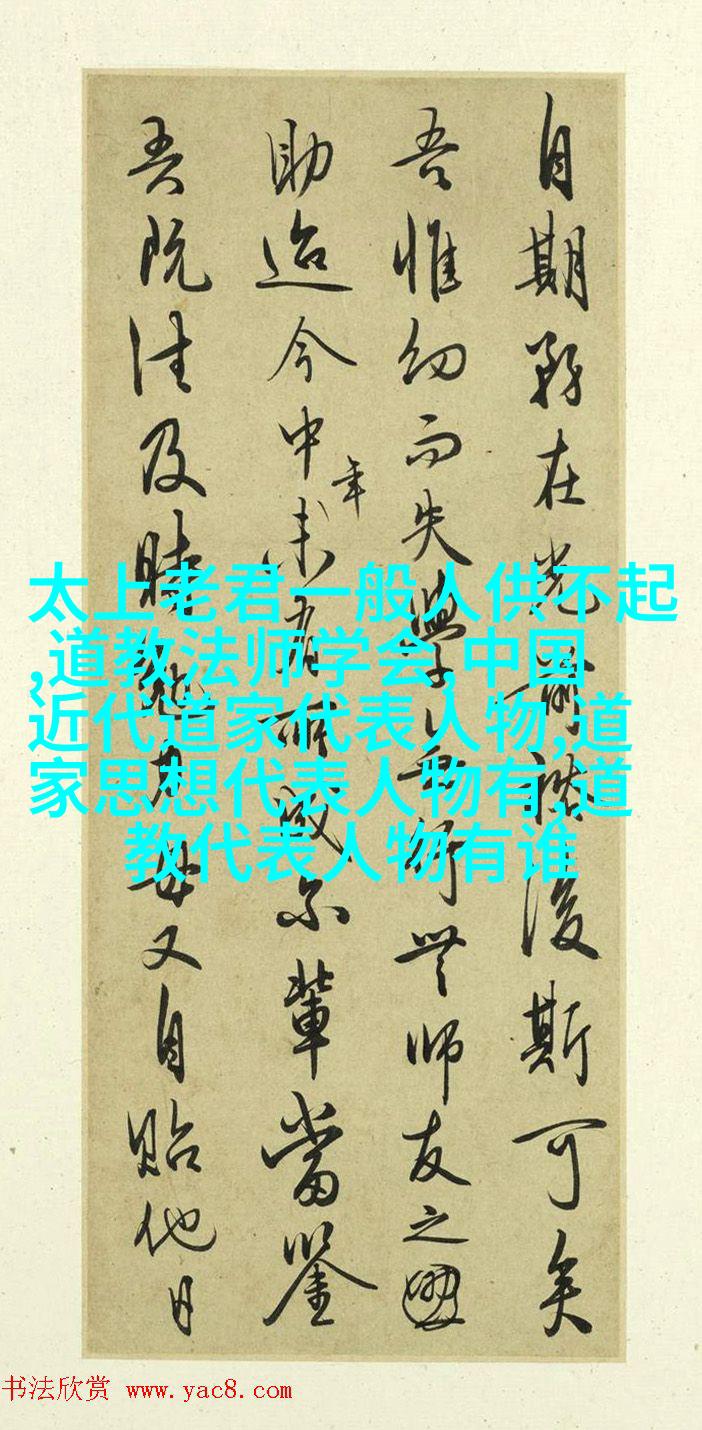 自期務在光前裕後斯可矣
吾惟幼而失學无行無師友之
助迨今中年未有所成尔輩當鑒
吾既往及時勉力毋又自貽他日
太上老君一般人供不起
,道教法师学会,中国
近代道家代表人物,道
家思想代表人物有,道
教代表人物有谁
书法欣赏 www.yac8.com